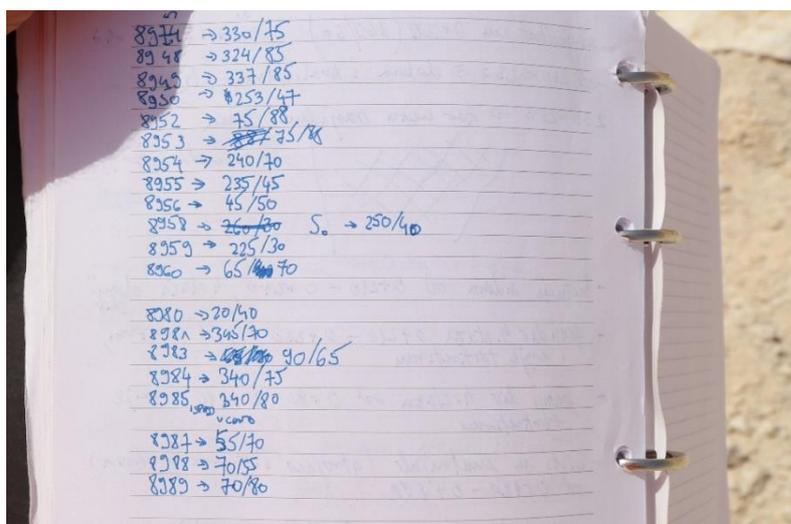 8974 → 330/75
8948 → 324/85
8949 → 337/85
8950 → 253/47
8952 → 75/88
8953 → 75/88
8954 → 240/70
8955 → 235/45
8956 → 45/50
8958 → 260/30 S. → 250/40
8959 → 225/30
8960 → 65/70
8980 → 20/40
8981 → 345/70
8983 → 90/65
8984 → 340/75
8985 → 340/80
8987 → 55/70
8988 → 70/55
8989 → 70/80